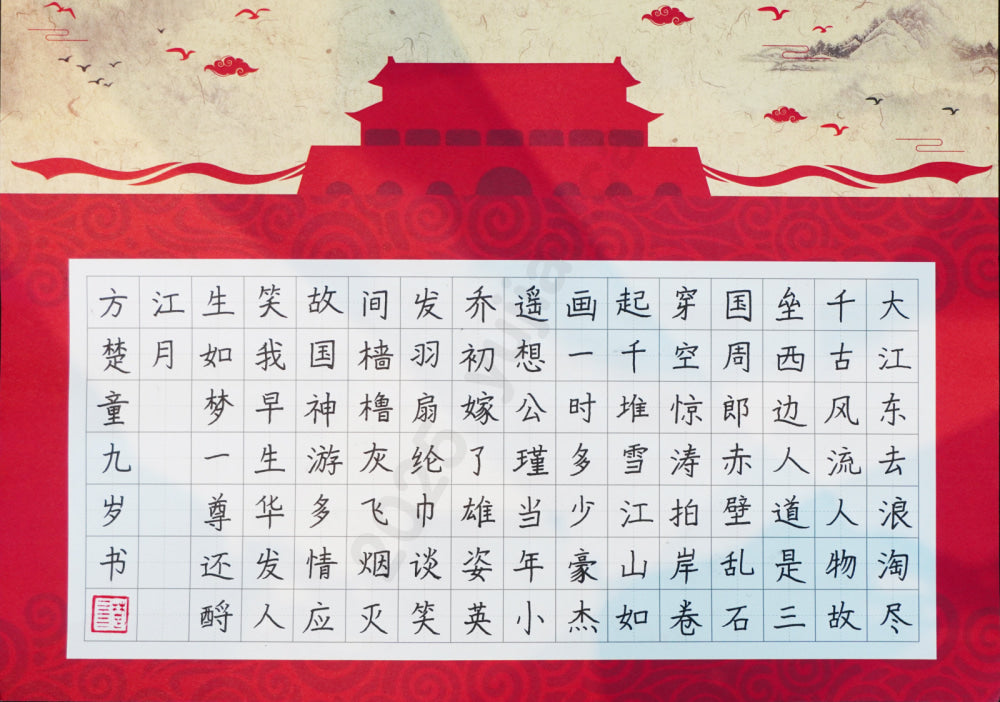 大江东去浪淘尽
千古风流人物故
垒西边人道是三
国周郎赤壁乱石
穿空惊涛拍岸卷
起千堆雪江山如
画一时多少豪杰
遥想公瑾当年小
乔初嫁了雄姿英
发羽扇纶巾谈笑
间樯橹灰飞烟灭
故国神游多情应
笑我早生华发人
生如梦一尊还酹
江月
方楚童九岁书